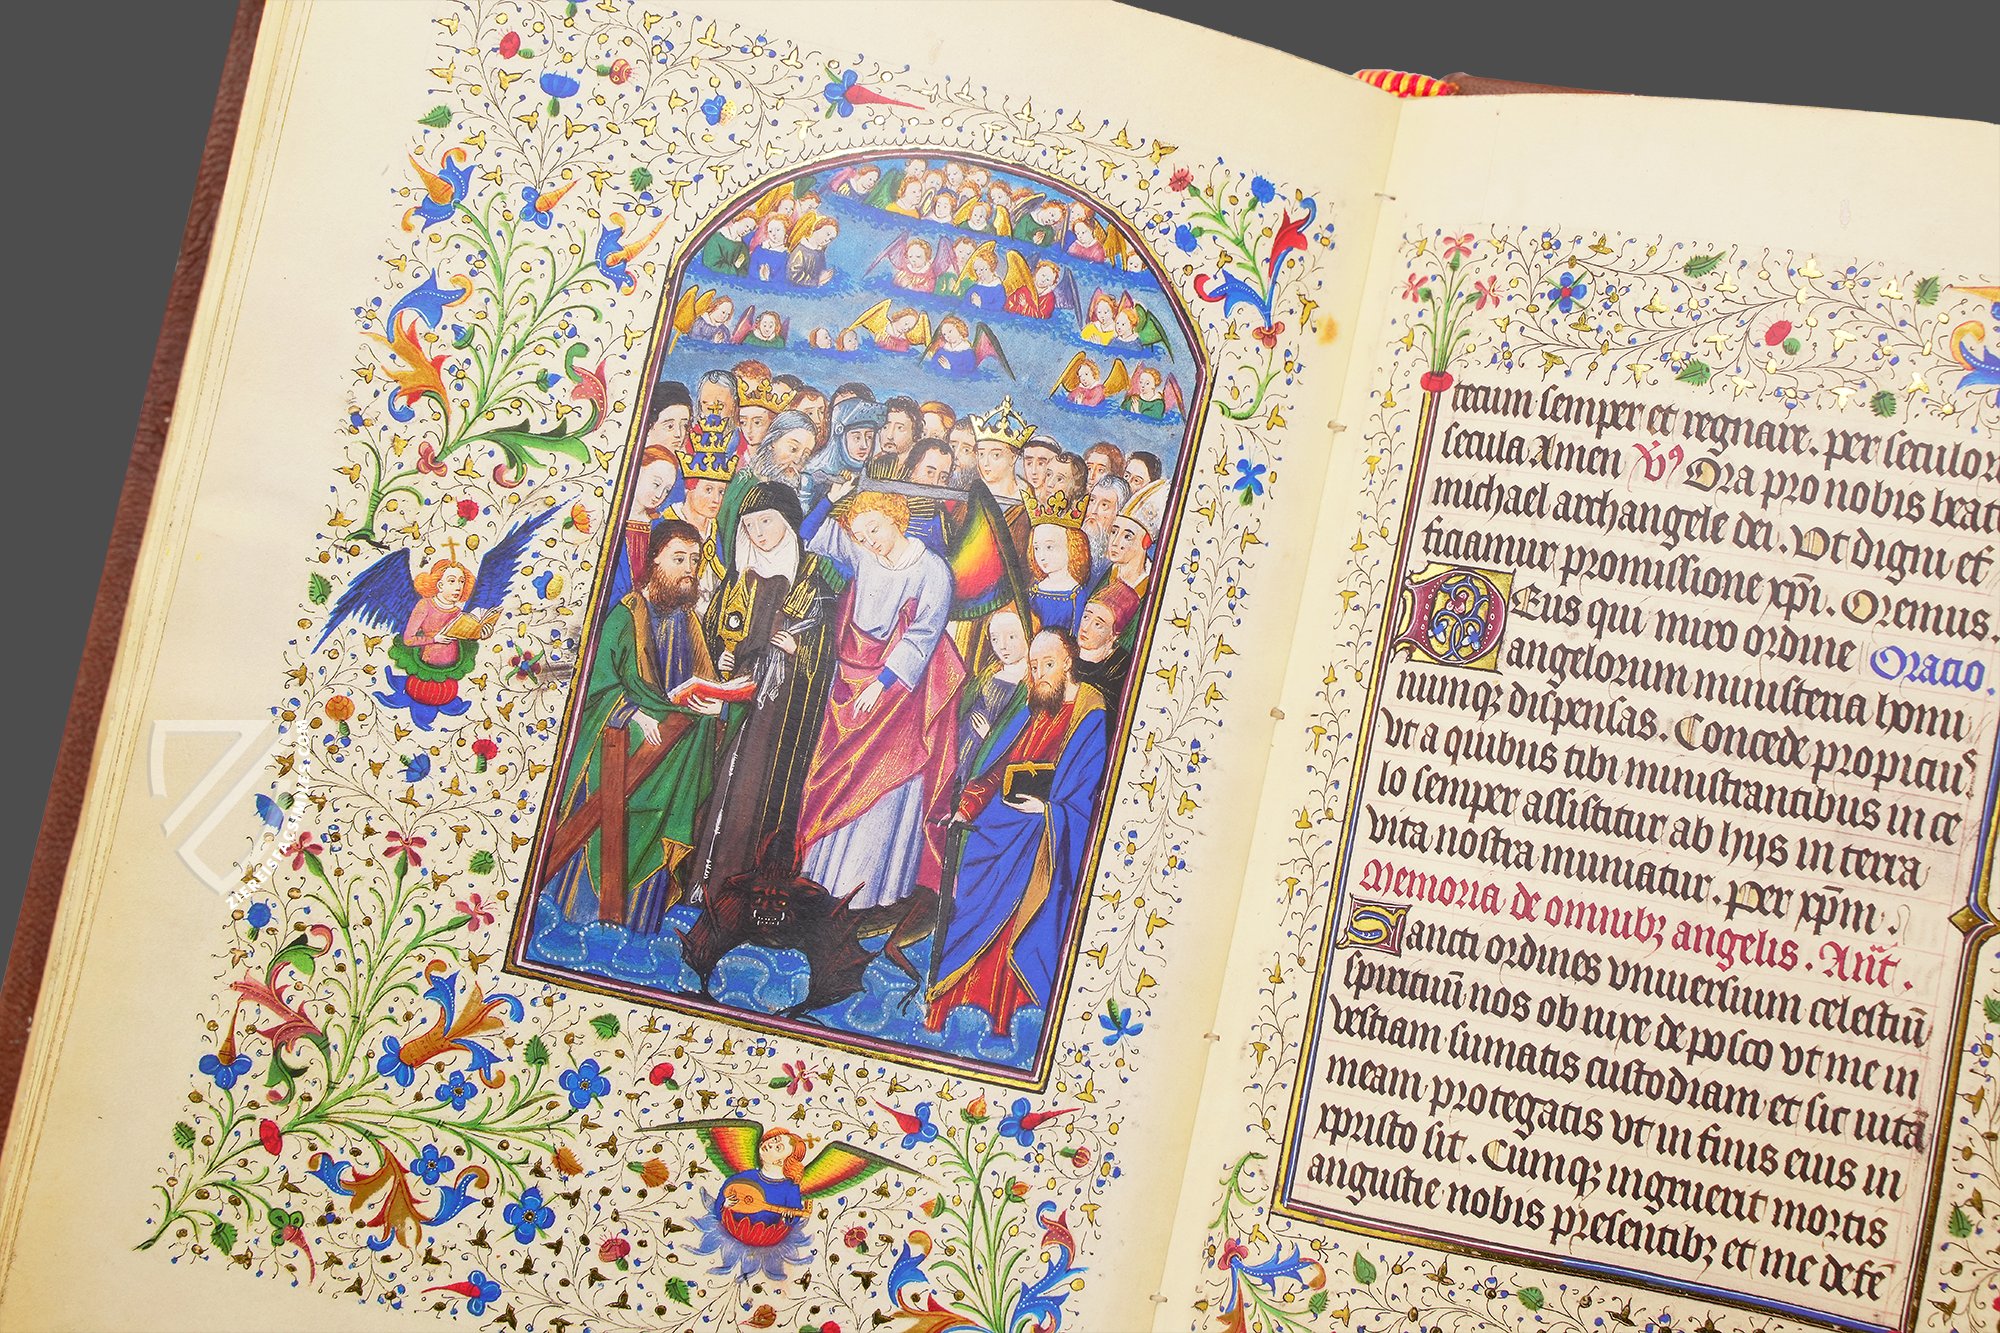 tecum semper et regnare. per seculor
secula Amen V9 Ora pro nobis beat
michael archangele dei. Vt digni ef
ficiamur promissione xp̄i. Oremus.
DEus qui miro ordine Oratio.
angelorum ministeria homi
numqꝫ dispensas. Concede propicius
vt a quibus tibi ministrantibus in ce
lo semper assistitur ab hijs in terra
vita nostra muniatur. Per xp̄m.
Memoria de omnibꝫ angelis. Ant̄.
Sancti ordines vniuersium celestiū
spirituū nos obnixe deposco vt me in
vestram sumatis custodiam et sic iuitā
meam protegatis vt in finis eius in
xpristo sit. Cumqꝫ ingruerit mortis
angustie nobis presentibꝫ et me defē
ZIEREIS FACSIMILES.COM